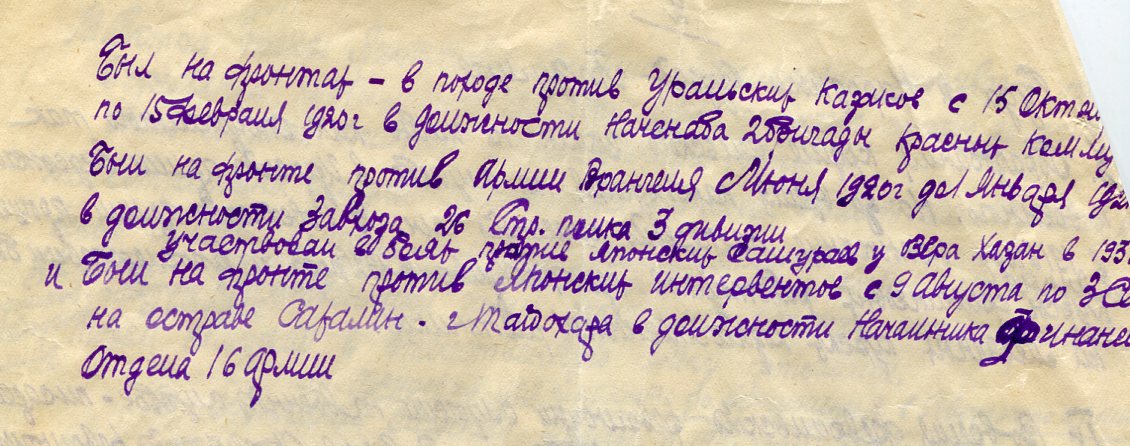 Был на фронтах – в походе против Уральских Казаков с 15 Октя
по 15 февраля 1920г в должности Начснаба 2 бригады Красных Комму
Был на фронте против Армии Врангеля с Июня 1920г до 1 Января 192
в должности Завхоза 26 Стр. полка 3 дивизии
участвовал в боях против Японских самураев у Озера Хазан в 193
и Был на фронте против Японских интервентов с 9 Августа по 3 Се
на острове Сахалин. г в должности Начальника Финансо
Отдела 16 Армии